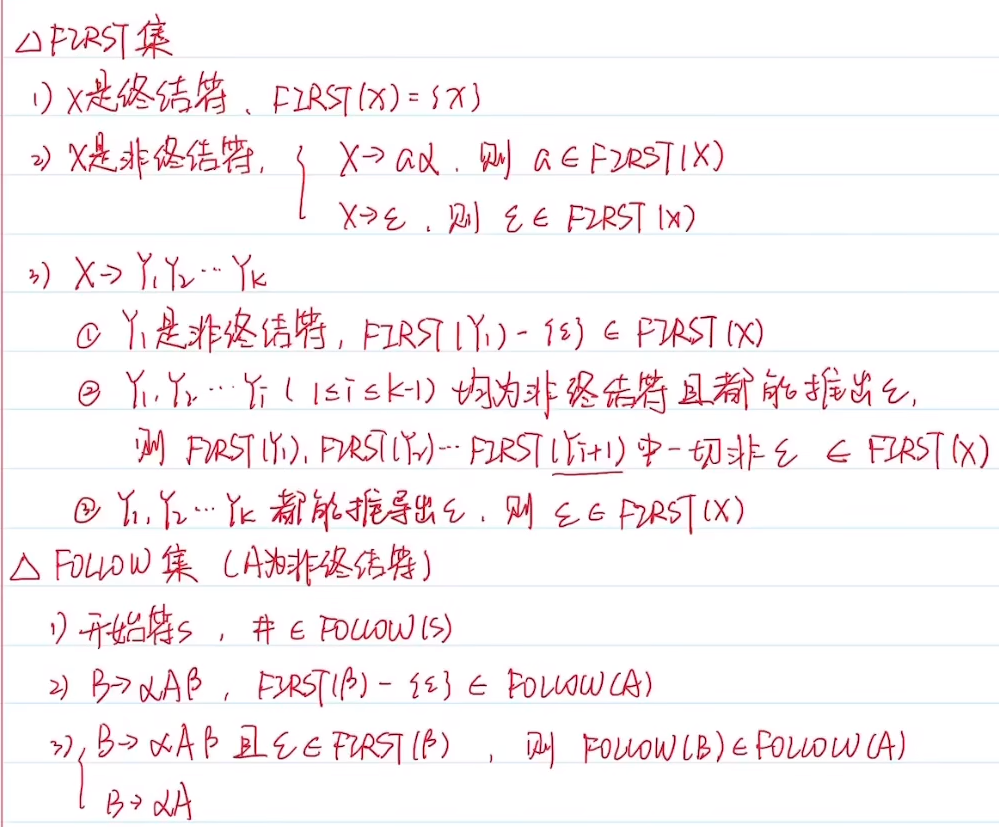 △ FIRST集
1) X是终结符、FIRST(X)={X}
2) X是非终结符, { X→aα、则 a∈FIRST(X)
X→ε、则 ε∈FIRST(X)
3) X→Y₁Y₂…Yₖ
① Y₁是非终结符, FIRST(Y₁)-{ε}∈FIRST(X)
② Y₁,Y₂…Yᵢ(1≤i≤k-1)均为非终结符且都能推出ε,
则 FIRST(Y₁), FIRST(Y₂)…FIRST(Yᵢ₊₁)中一切非ε ∈ FIRST(X)
③ Y₁,Y₂…Yₖ都能推导出ε、则 ε∈FIRST(X)
△ FOLLOW集 (A为非终结符)
1) 开始符S, #∈FOLLOW(S)
2) B→αAβ, FIRST(β)-{ε}∈FOLLOW(A)
3) { B→αAβ且ε∈FIRST(β), 则 FOLLOW(B)∈FOLLOW(A)
B→αA